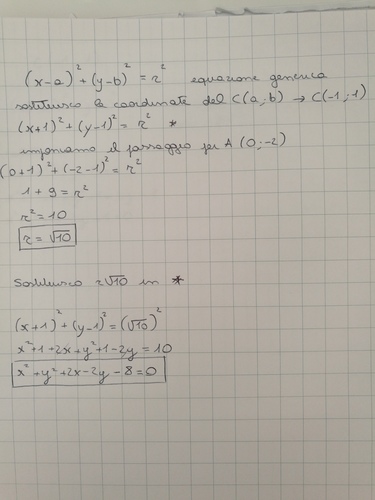 (x-a)² + (y-b)² = r² equazione generica
sostituisco le coordinate del C(a;b) → C(-1;1)
(x+1)² + (y-1)² = r² *
imponiamo il passaggio per A (0;-2)
(0+1)² + (-2-1)² = r²
1 + 9 = r²
r² = 10
r = √10
Sostituisco r√10 in *
(x+1)² + (y-1)² = (√10)²
x² + 1 + 2x + y² + 1 - 2y = 10
x² + y² + 2x - 2y - 8 = 0